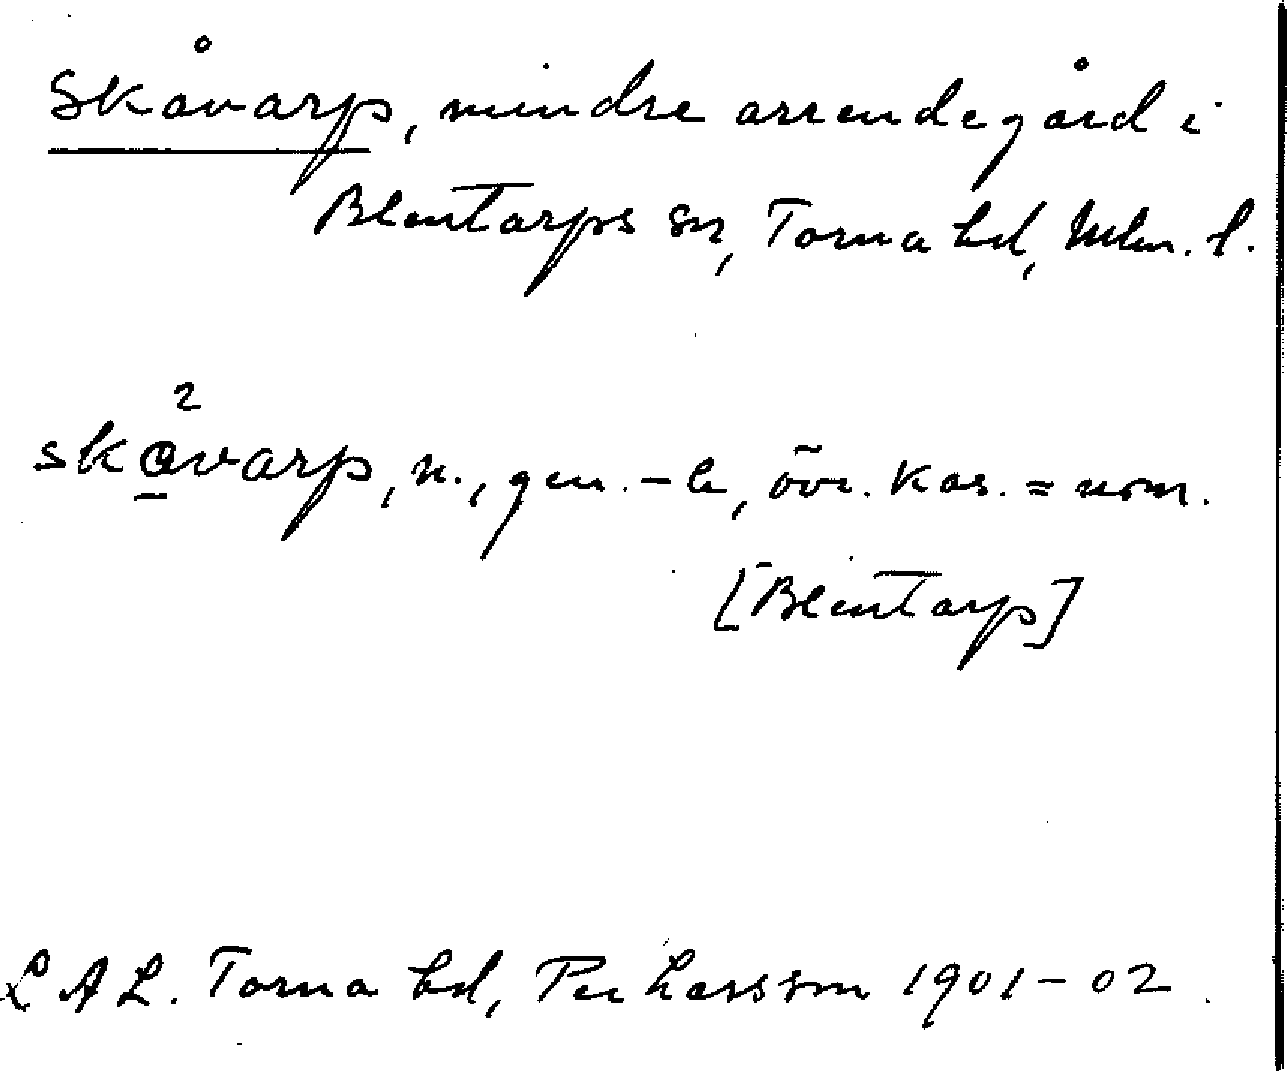 Skåvarp, mindre arrendegård i
Blentarps sn, Torna hd, Mlm. l.
2
skavarp, n., gen. -, övr. kas. = nom.
[Blentarp]
LAL. Torna hd, Per Larsson 1901-02.